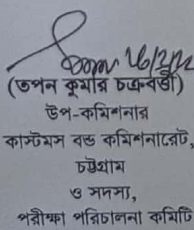 16/2/12
(তপন কুমার চক্রবর্তী)
উপ-কমিশনার
কাস্টমস বন্ড কমিশনারেট,
চট্টগ্রাম
ও সদস্য,
পরীক্ষা পরিচালনা কমিটি